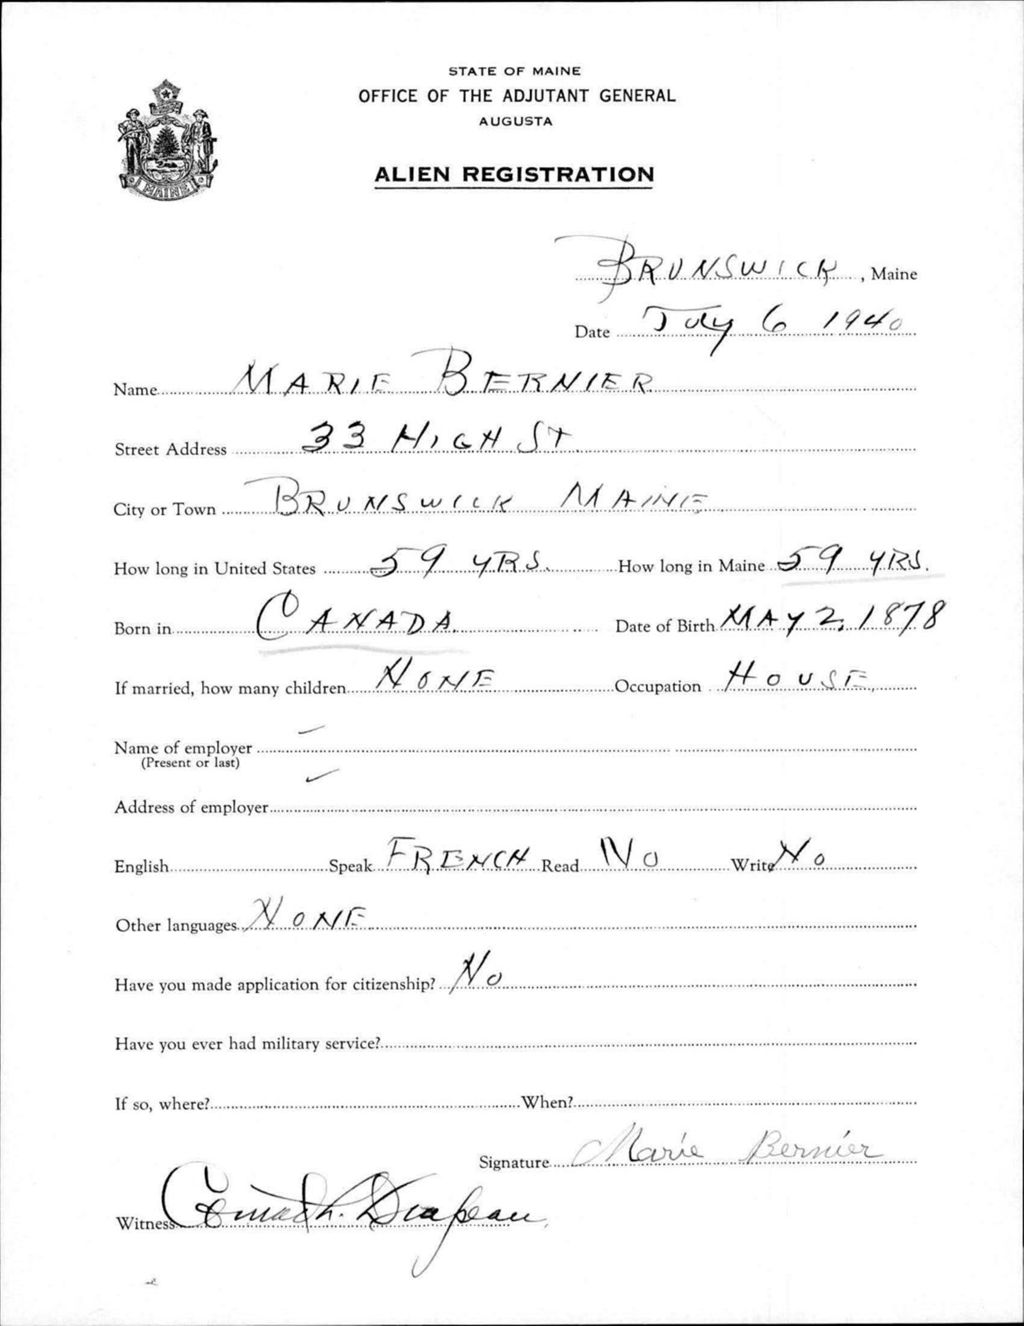 STATE OF MAINE
OFFICE OF THE ADJUTANT GENERAL
AUGUSTA
ALIEN REGISTRATION
MAINE
BRUNSWICK, Maine
Date July 6 1940
Name MARIE BERNIER
Street Address 33 HIGH ST
City or Town BRUNSWICK MAINE
How long in United States 59 YRS. How long in Maine 59 YRS.
Born in CANADA Date of Birth MAY 2, 1878
If married, how many children NONE Occupation HOUSE
Name of employer
(Present or last)
Address of employer
English Speak FRENCH Read No Write No
Other languages NONE
Have you made application for citizenship? No
Have you ever had military service?
If so, where? When?
Signature Marie Bernier
Witness Drapeau